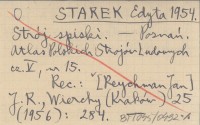 STAREK Edyta 1954.
Strój spiski. — Poznań.
Atlas Polskich Strojów Ludowych
cz. V, nr 15.
Rec.: [Reychman Jan]
J. R., Wierchy (Kraków) 25
(1956): 284.